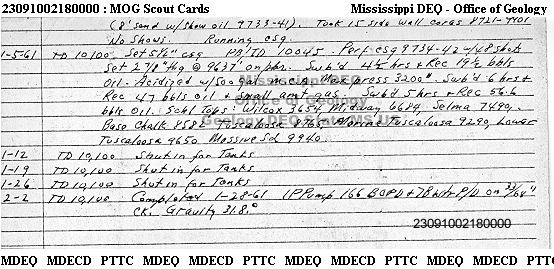 23091002180000 : MOG Scout Cards
Mississippi DEQ - Office of Geology
(8' sand w/show oil 9733-41). Took 15 side wall cores 8721-9901
No Shows. Running csg.
1-5-61 TD 10,100' Set 5½" csg PBTD 10045. Perf csg 9734-42 w/48 shots
Set 2⅞" tbg @ 9637' on pkr. Swb'd 4½ hrs + Rec 19½ bbls
oil. Acidized w/500 gal m.c.a. Max press 3200#. Swb'd 6 hrs +
Rec 47 bbls oil + Small amt gas. Swb'd 5 hrs + Rec 56.6
bbls oil. Schl Tops: Wilcox 3654 Midway 6684, Selma 7490,
Base Chalk 8582 Tuscaloosa 8765, Marine Tuscaloosa 9290, Lower
Tuscaloosa 9650 Massive Sd 9940.
1-12 TD 10,100 Shut in for Tanks
1-19 TD 10,100 Shut in for Tanks
1-26 TD 10,100 Shut in for Tanks
2-2 TD 10,100 Completed 1-28-61 IP Pump 166 BOPD + 78 wtr P/D on /64"
ck. Gravity 31.8°
Mississippi DEQ
Office of Geology
23091002180000
MDEQ MDECD PTTC MDEQ MDECD PTTC MDEQ MDECD PTTC MDEQ MDECD PTTC